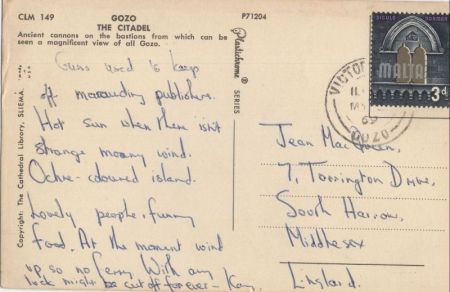 CLM 149
GOZO
P71204
THE CITADEL
Ancient cannons on the bastions from which can be
seen a magnificent view of all Gozo.
Guns used to keep
off marauding publishers.
Hot sun when there isn't
strange moany wind.
Ochre-coloured island.
Lovely people, funny
food. At the moment wind
up, so no ferry. With any
luck might be cut off forever – Kay.
Copyright: The Cathedral Library, SLIEMA.
Plastichrome ® SERIES
SICULO NORMAN
MALTA
3d
GOZO
Jean MacQueen,
7, Torrington Drive,
South Harrow,
Middlesex
England.